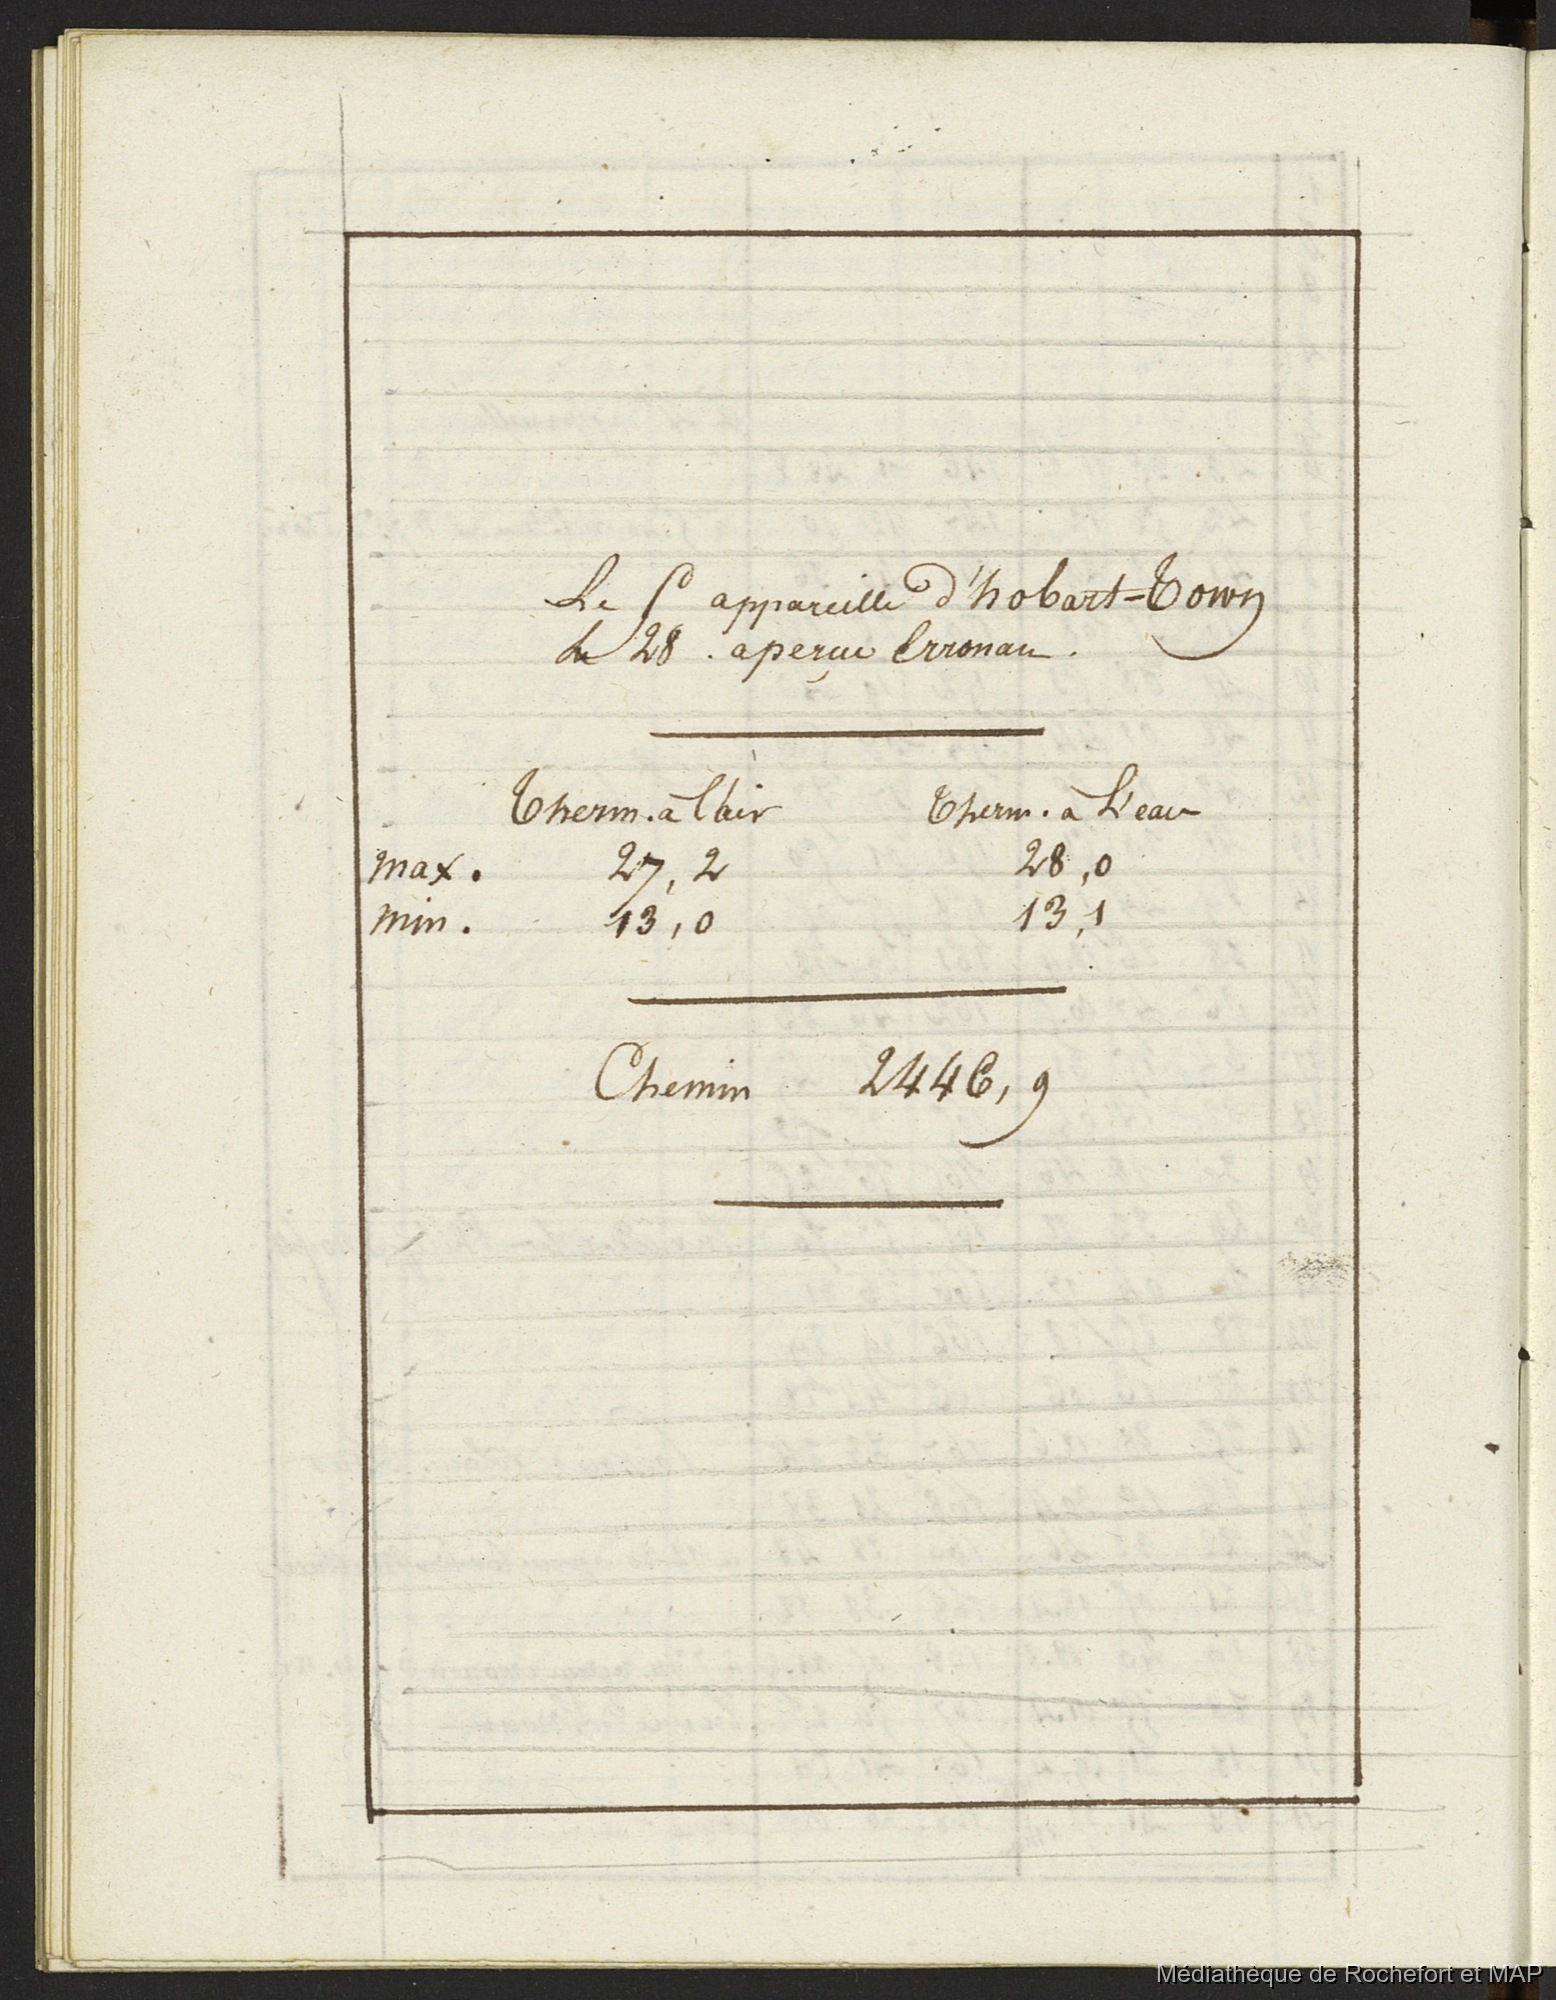 Le 5 appareillé d'hobart-Town
Le 28 . aperçu Erronan .
Therm. à l'air Therm. à L'eau
max. 27,2 28,0
min. 13,0 13,1
Chemin 2446,9
Médiathèque de Rochefort et MAP